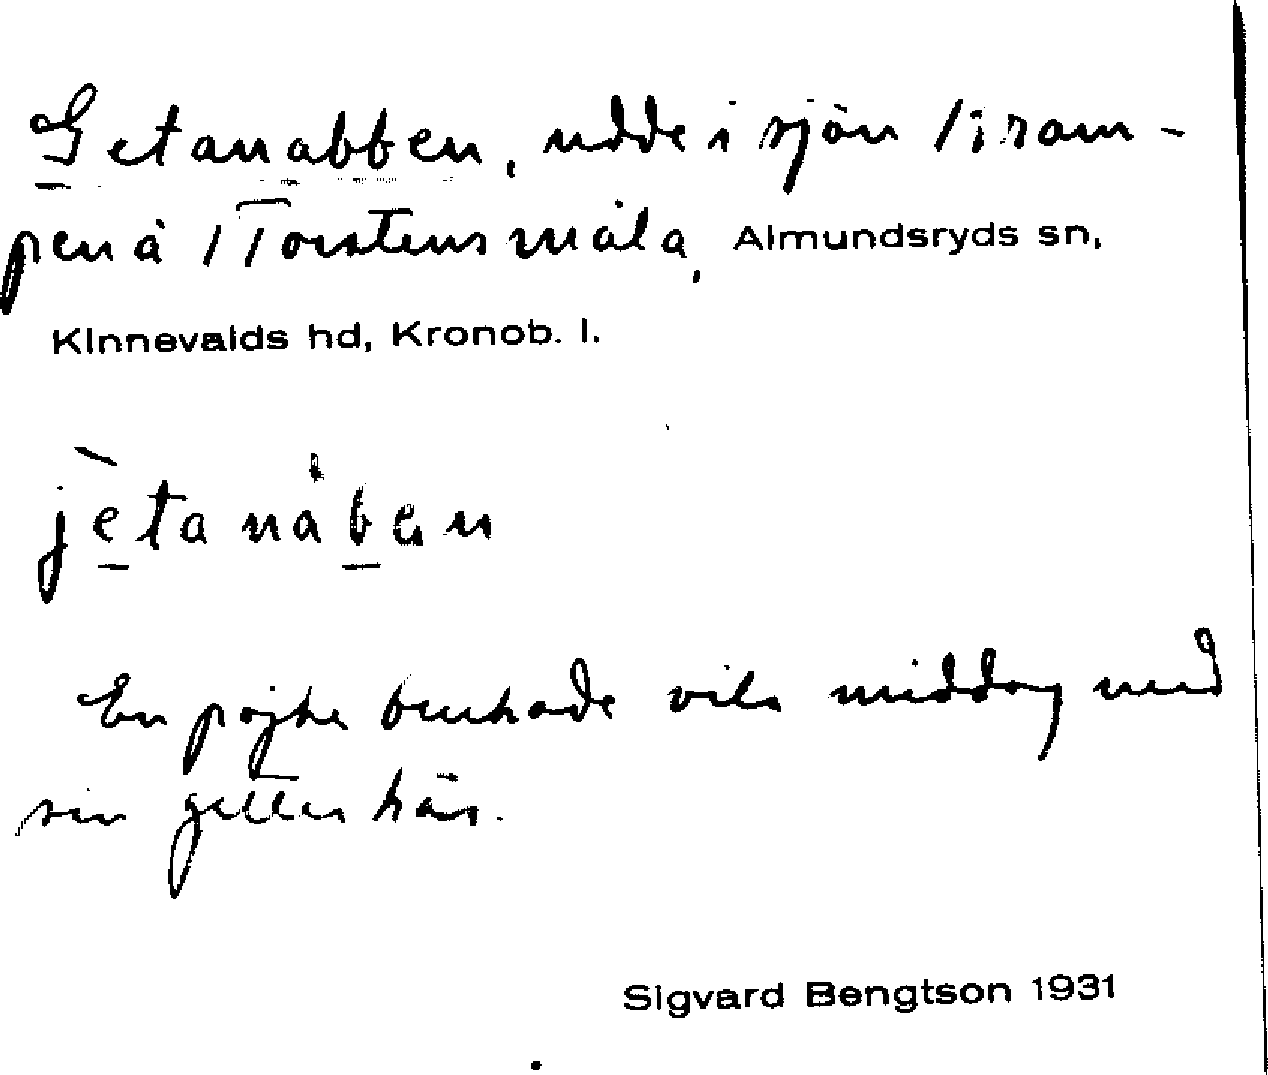 Getanabben, udde i sjön Kram-
pen å /Torstensmåla, Almundsryds sn,
Kinnevalds hd, Kronob. l.
jètanàben
En pojke brukade vila middag med
sin getter här.
Sigvard Bengtson 1931